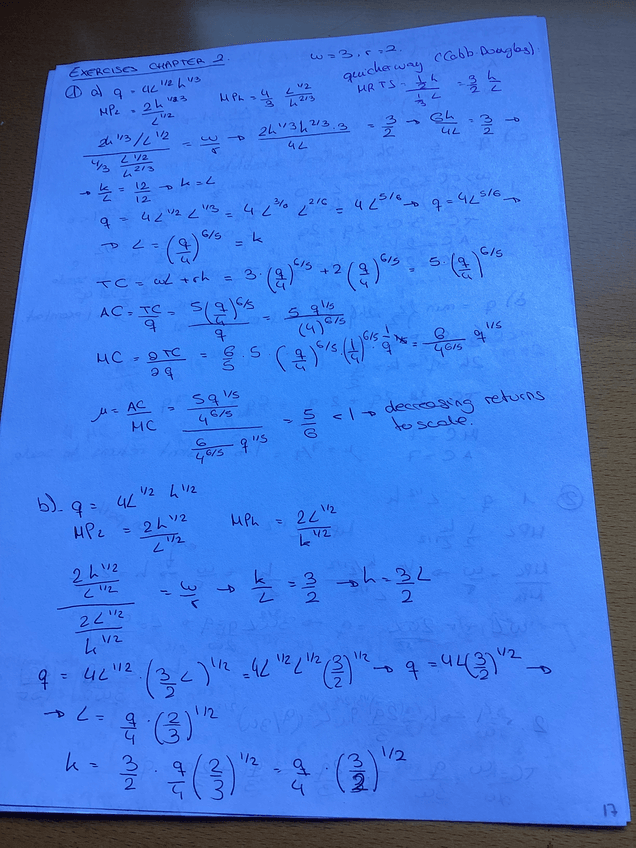 EXERCISES CHAPTER 2. w=3, r=2.
① a) q = 4L^1/2 k^1/3 quicker way (Cobb-Douglas)
MPL = 2k^1/3 / L^1/2 MPk = 4/3 L^1/2 / k^2/3 MRTS = (1/2 k) / (1/3 L) = 3/2 k/L
(2k^1/3 / L^1/2) / (4/3 L^1/2 / k^2/3) = w/r → 2k^1/3 k^2/3 · 3 / 4L = 3/2 → 6k/4L = 3/2 →
→ k/L = 12/12 → k = L
q = 4L^1/2 L^1/3 = 4L^3/6 L^2/6 = 4L^5/6 → q = 4L^5/6 →
→ L = (q/4)^6/5 = k
TC = wL + rk = 3·(q/4)^6/5 + 2(q/4)^6/5 = 5·(q/4)^6/5
AC = TC/q = 5(q/4)^6/5 / q = 5 q^1/5 / (4)^6/5
MC = ∂TC/∂q = 6/5 · 5 · (q/4)^6/5 · (1/4)^6/5 · 1/q = 6/4^6/5 q^1/5
μ = AC/MC = (5q^1/5 / 4^6/5) / (6/4^6/5 q^1/5) = 5/6 < 1 → decreasing returns
to scale.
b). q = 4L^1/2 k^1/2
MPL = 2k^1/2 / L^1/2 MPk = 2L^1/2 / k^1/2
(2k^1/2 / L^1/2) / (2L^1/2 / k^1/2) = w/r → k/L = 3/2 → k = 3L/2
q = 4L^1/2 · (3/2 L)^1/2 = 4L^1/2 L^1/2 (3/2)^1/2 → q = 4L(3/2)^1/2 →
→ L = q/4 · (2/3)^1/2
k = 3/2 · q/4 (2/3)^1/2 = q/4 · (3/2)^1/2
17